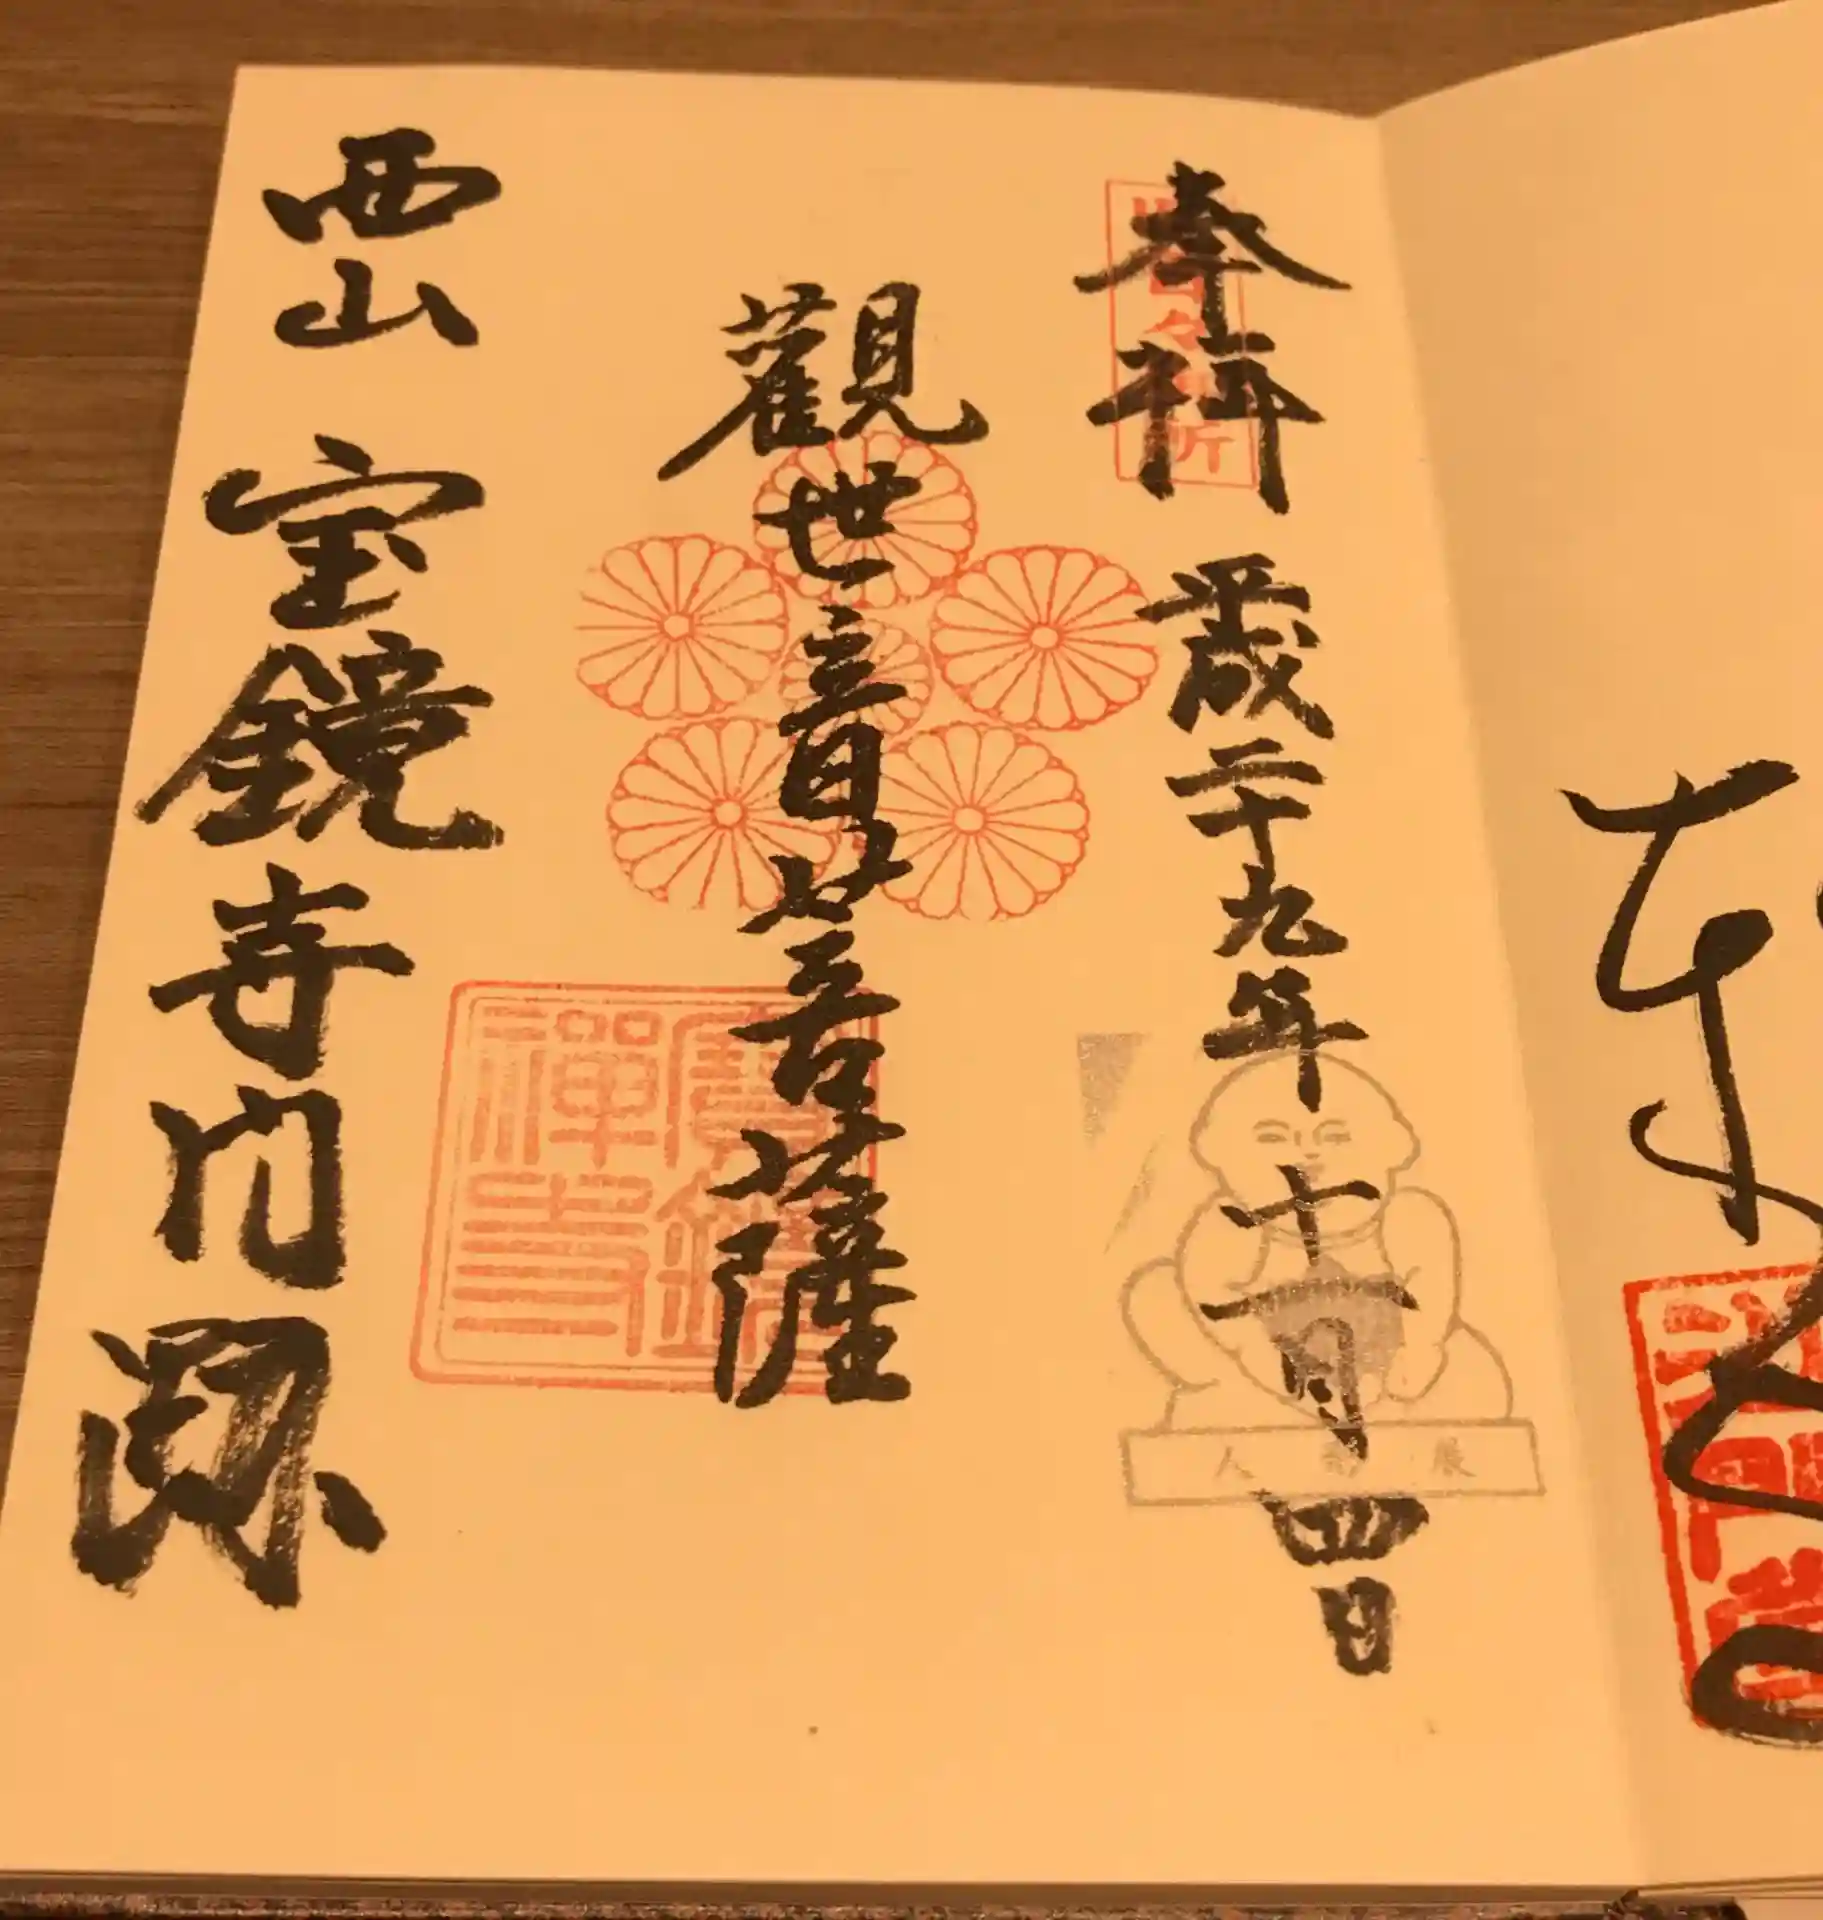 奉拝 平成二十九年十一月四日
觀世音菩薩
西山 宝鏡寺門跡
寳鏡
禅寺
人形展